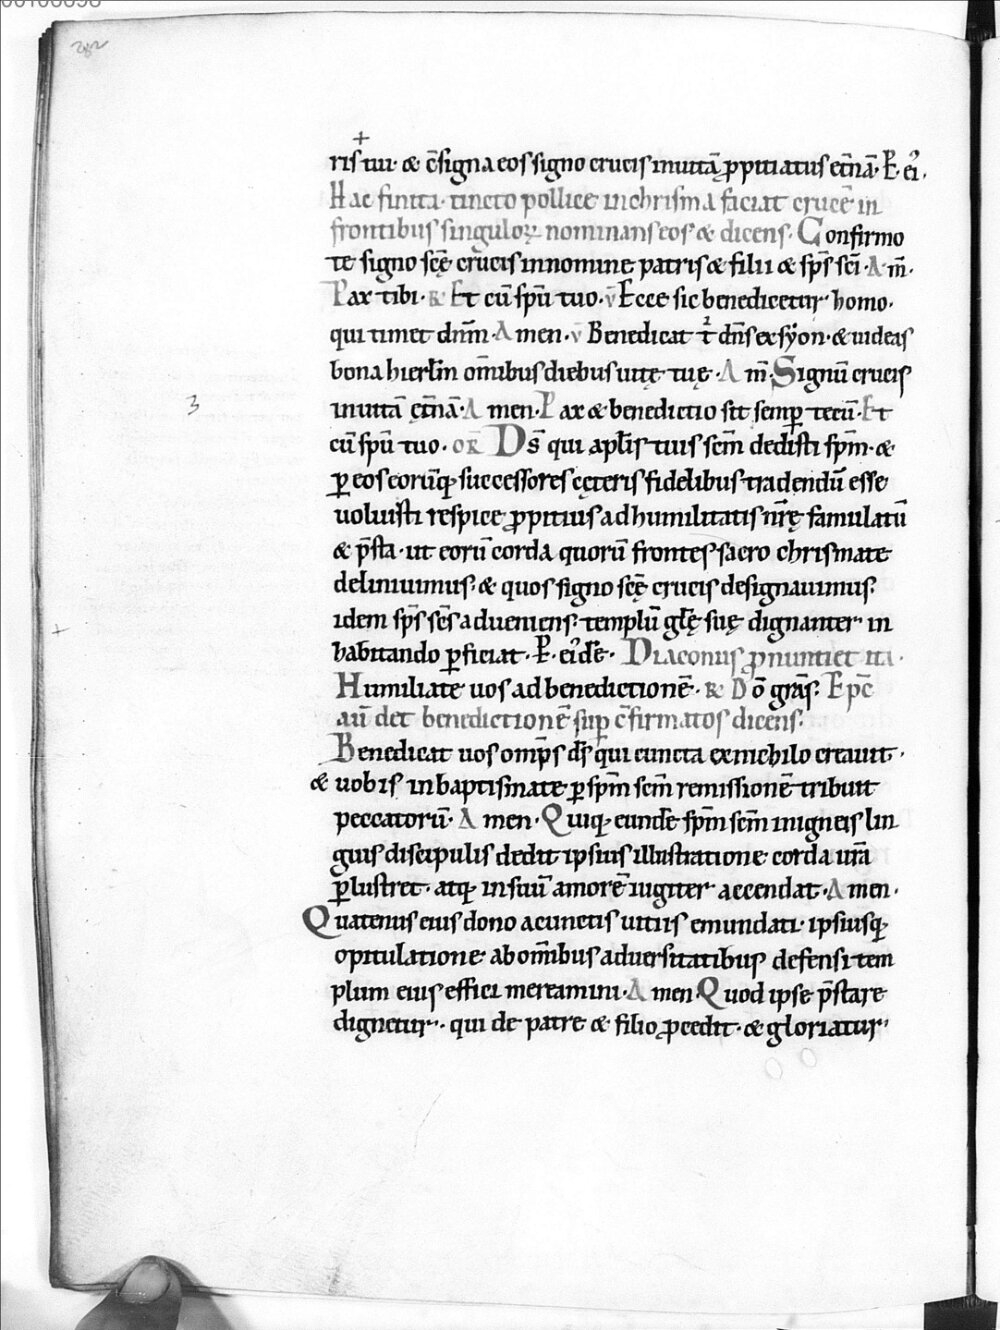 282
ris tui· & c̄signa eos signo crucis inuitā ꝓpitiatus et̄nā· P̲. ei᾿.
Hac finita· tincto pollice in chrisma faciat crucē in
frontibus singuloꝝ nominans eos & dicens· Confirmo
te signo scę̄ crucis innomine patris & filii & sp̄s sc̄i· Am̄·
Pax tibi· R̲ Et cū sp̄u tuo· v̄ Ecce sic benedicetur homo·
qui timet dn̄m· Amen· v̄ Benedicat t̄ dn̄s ex syon· & uideas
bona hierlm̄ om̄ibus diebus uitę tuę· Am̄ Signū crucis
inuitā ęt̄nā· Amen· Pax & benedictio sit semp̲ tecū· Et
cū sp̄u tuo· OR̄ Ds̄ qui apl̄is tuis sc̄m dedisti sp̄m· &
ꝑ eos eorūq; successores cęteris fidelibus tradendū esse
uoluisti respice ꝓpitius ad humilitatis nr̄ę famulatū
& p̄sta· ut eorū corda quorū frontes sacro chrismate
deliniuimus· & quos signo scę̄ crucis designauimus·
idem sp̄s sc̄s adueniens· templū gl̄ę suę dignanter in
habitando ꝑficiat· P̲. ei᾿dē· Diaconus ꝓnuntiet ita·
Humiliate uos ad benedictionē· R̲ Dō grās· Epc̄
aū det benedictionē sup̲ c̄firmatos dicens·
Benedicat uos omp̄s ds̄ qui cuncta ex nichilo creauit·
& uobis in baptismate ꝑ sp̄m sc̄m remissionē tribuit
peccatorū· Amen· Quiq; eundē sp̄m sc̄m inigneis lin
guis discipulis dedit ipsius illustratione corda ur̄a
ꝑlustret· atq; insuū amorē iugiter accendat· Amen·
Quatenus eius dono acunctis uitiis emundati· ipsiusq;
opitulatione ab om̄ibus aduersitatibus defensi tem
plum eius effici mereamini· Amen Quod ipse p̄stare
dignetur· qui de patre & filio ꝓcedit· & gloriatur
3